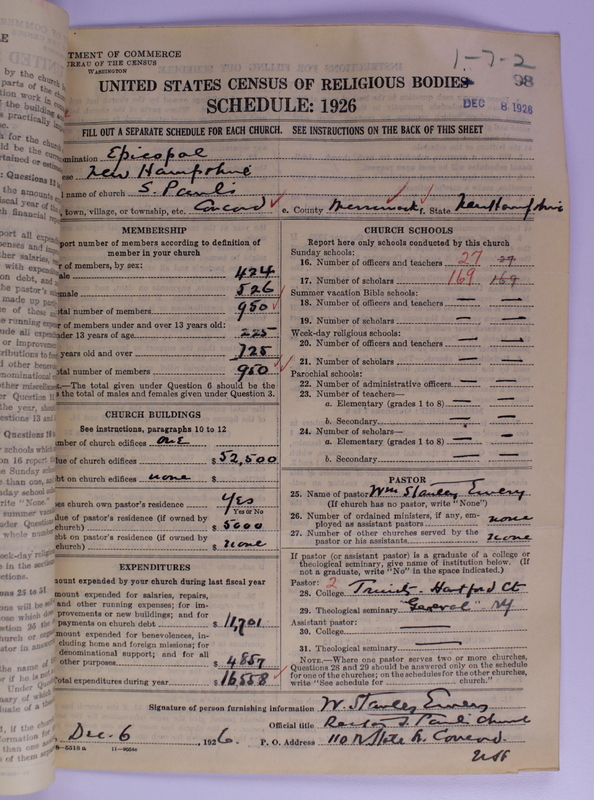 TMENT OF COMMERCE
REAU OF THE CENSUS
WASHINGTON
1-7-2
98
UNITED STATES CENSUS OF RELIGIOUS BODIES
SCHEDULE: 1926
DEC 8 1926
FILL OUT A SEPARATE SCHEDULE FOR EACH CHURCH. SEE INSTRUCTIONS ON THE BACK OF THIS SHEET
omination Episcopal
ese New Hampshire
l name of church S. Paul's
, town, village, or township, etc. Concord e. County Merrimack f. State New Hampshire
MEMBERSHIP
port number of members according to definition of
member in your church
r of members, by sex:
ale 424
male 526
tal number of members 950
r of members under and over 13 years old:
nder 13 years of age 225
years old and over 725
tal number of members 950
.—The total given under Question 6 should be the
s the total of males and females given under Question 3.
CHURCH BUILDINGS
See instructions, paragraphs 10 to 12
mber of church edifices one
lue of church edifices $52,500
bt on church edifices none $
es church own pastor's residence Yes
Yes or No
lue of pastor's residence (if owned by
church) $5000
bt on pastor's residence (if owned by
church) $none
EXPENDITURES
ount expended by your church during last fiscal year
mount expended for salaries, repairs,
and other running expenses; for im-
provements or new buildings; and for
payments on church debt $11,701
mount expended for benevolences, in-
cluding home and foreign missions; for
denominational support; and for all
other purposes $4857
Total expenditures during year $16,558
CHURCH SCHOOLS
Report here only schools conducted by this church
Sunday schools:
16. Number of officers and teachers 27 27
17. Number of scholars 169 169
Summer vacation Bible schools:
18. Number of officers and teachers — —
19. Number of scholars — —
Week-day religious schools:
20. Number of officers and teachers — —
21. Number of scholars — —
Parochial schools:
22. Number of administrative officers — —
23. Number of teachers—
a. Elementary (grades 1 to 8) — —
b. Secondary — —
24. Number of scholars—
a. Elementary (grades 1 to 8) — —
b. Secondary — —
PASTOR
25. Name of pastor Wm Stanley Emery
(If church has no pastor, write "None")
26. Number of ordained ministers, if any, em-
ployed as assistant pastors none
27. Number of other churches served by the
pastor or his assistants none
If pastor (or assistant pastor) is a graduate of a college or
theological seminary, give name of institution below. (If
not a graduate, write "No" in the space indicated.)
Pastor: 2
28. College Trinity - Hartford Ct
29. Theological seminary General " NY
Assistant pastor:
30. College —
31. Theological seminary —
NOTE.—Where one pastor serves two or more churches,
Questions 28 and 29 should be answered only on the schedule
for one of the churches; on the schedules for the other churches,
write "See schedule for church."
Signature of person furnishing information W. Stanley Emery
Official title Rector S. Paul's Church
Dec. 6, 1926. P. O. Address 110 N State St. Concord.
8-5518 a
N H